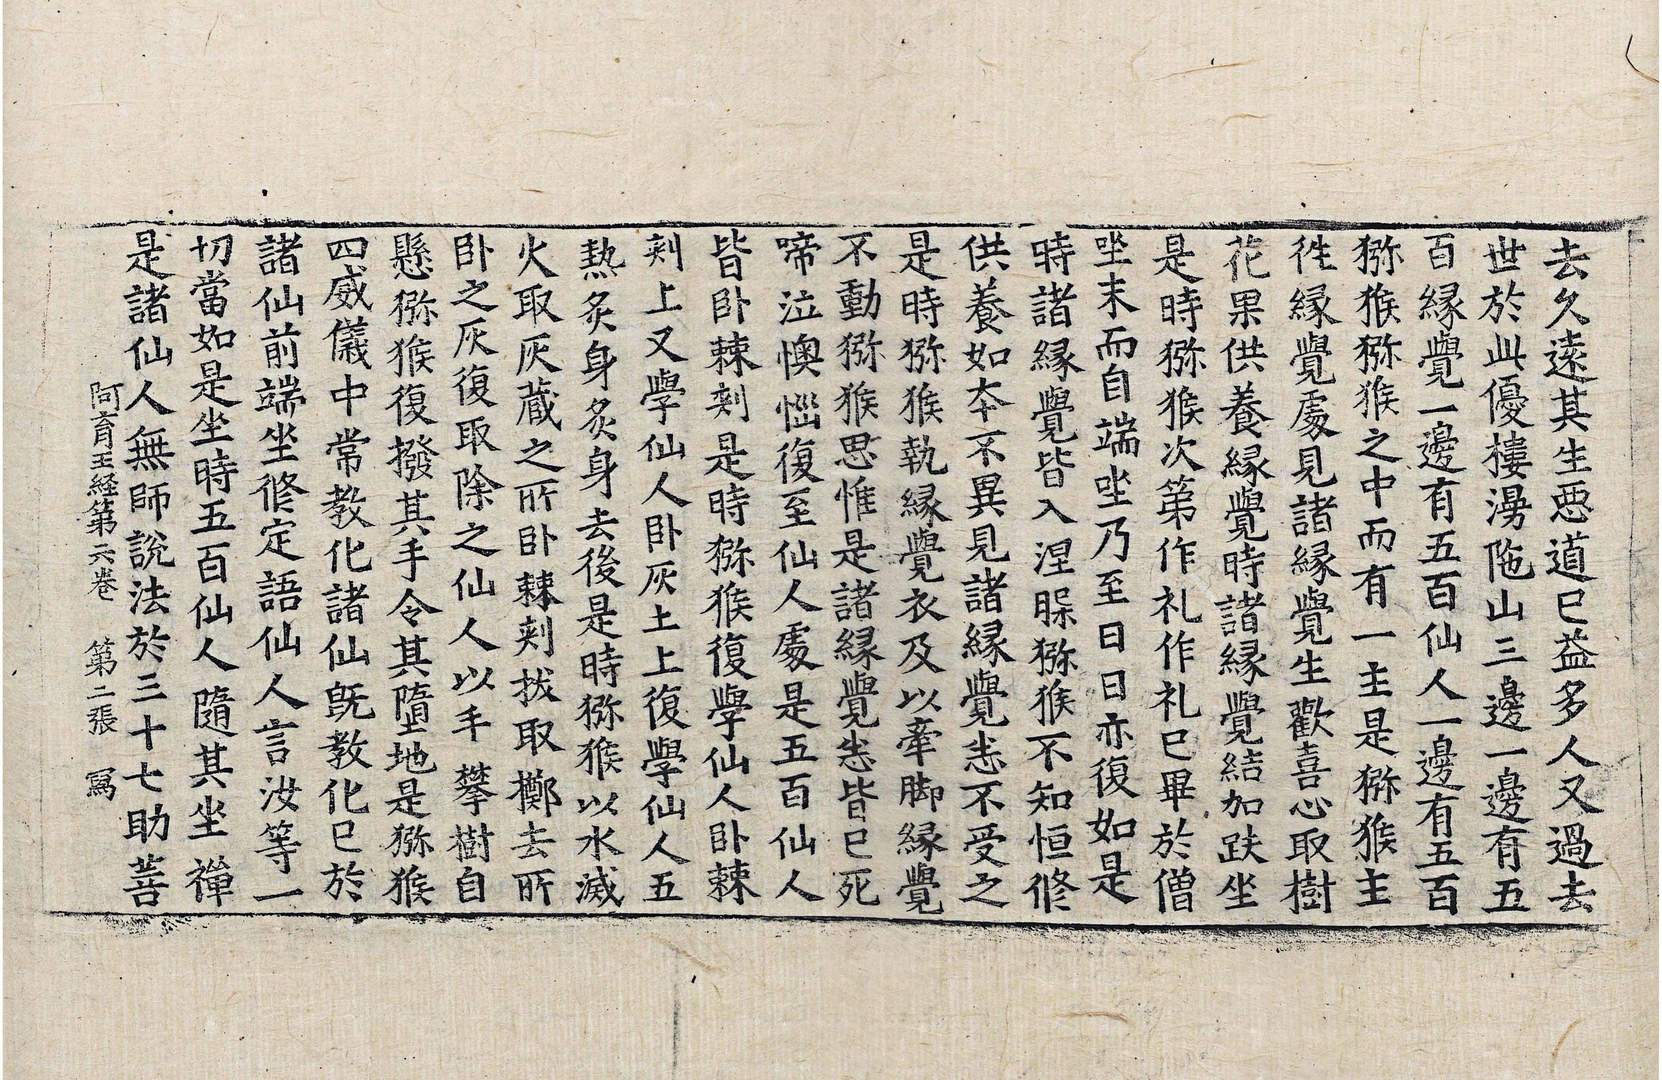 去久遠其生惡道已益多人又過去
世於此優樓漫陁山三邊一邊有五
百緣覺一邊有五百仙人一邊有五百
獼猴獼猴之中而有一主是獼猴主
徃緣覺處見諸緣覺生歡喜心取樹
花果供養緣覺時諸緣覺結加趺坐
是時獼猴次第作礼作礼已畢於僧
坐末而自端坐乃至日日亦復如是
時諸緣覺皆入涅槃獼猴不知恒修
供養如本不異見諸緣覺悉不受之
是時獼猴執緣覺衣及以牽脚緣覺
不動獼猴思惟是諸緣覺悉皆已死
啼泣懊惱復至仙人處是五百仙人
皆卧棘刾是時獼猴復學仙人卧棘
刾上又學仙人卧灰土上復學仙人五
熱炙身炙身去後是時獼猴以水滅
火取灰藏之所卧棘刾拔取擲去所
卧之灰復取除之仙人以手攀樹自
懸獼猴復撥其手令其墮地是獼猴
四威儀中常教化諸仙既教化已於
諸仙前端坐修定語仙人言汝等一
切當如是坐時五百仙人隨其坐禪
是諸仙人無師說法於三十七助菩
阿育王経第六卷 第二張 寫